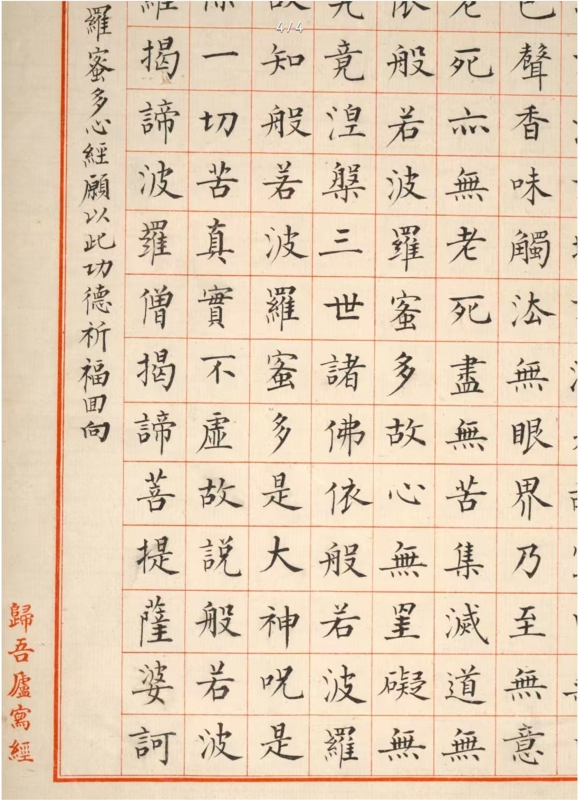 4/4
色聲香味觸法無眼界乃至無意
老死亦無老死盡無苦集滅道無
依般若波羅蜜多故心無罣礙無
究竟涅槃三世諸佛依般若波羅
故知般若波羅蜜多是大神呪是
除一切苦真實不虛故說般若波
羅揭諦波羅僧揭諦菩提薩婆訶
羅蜜多心經願以此功德祈福回向
歸吾廬寫經